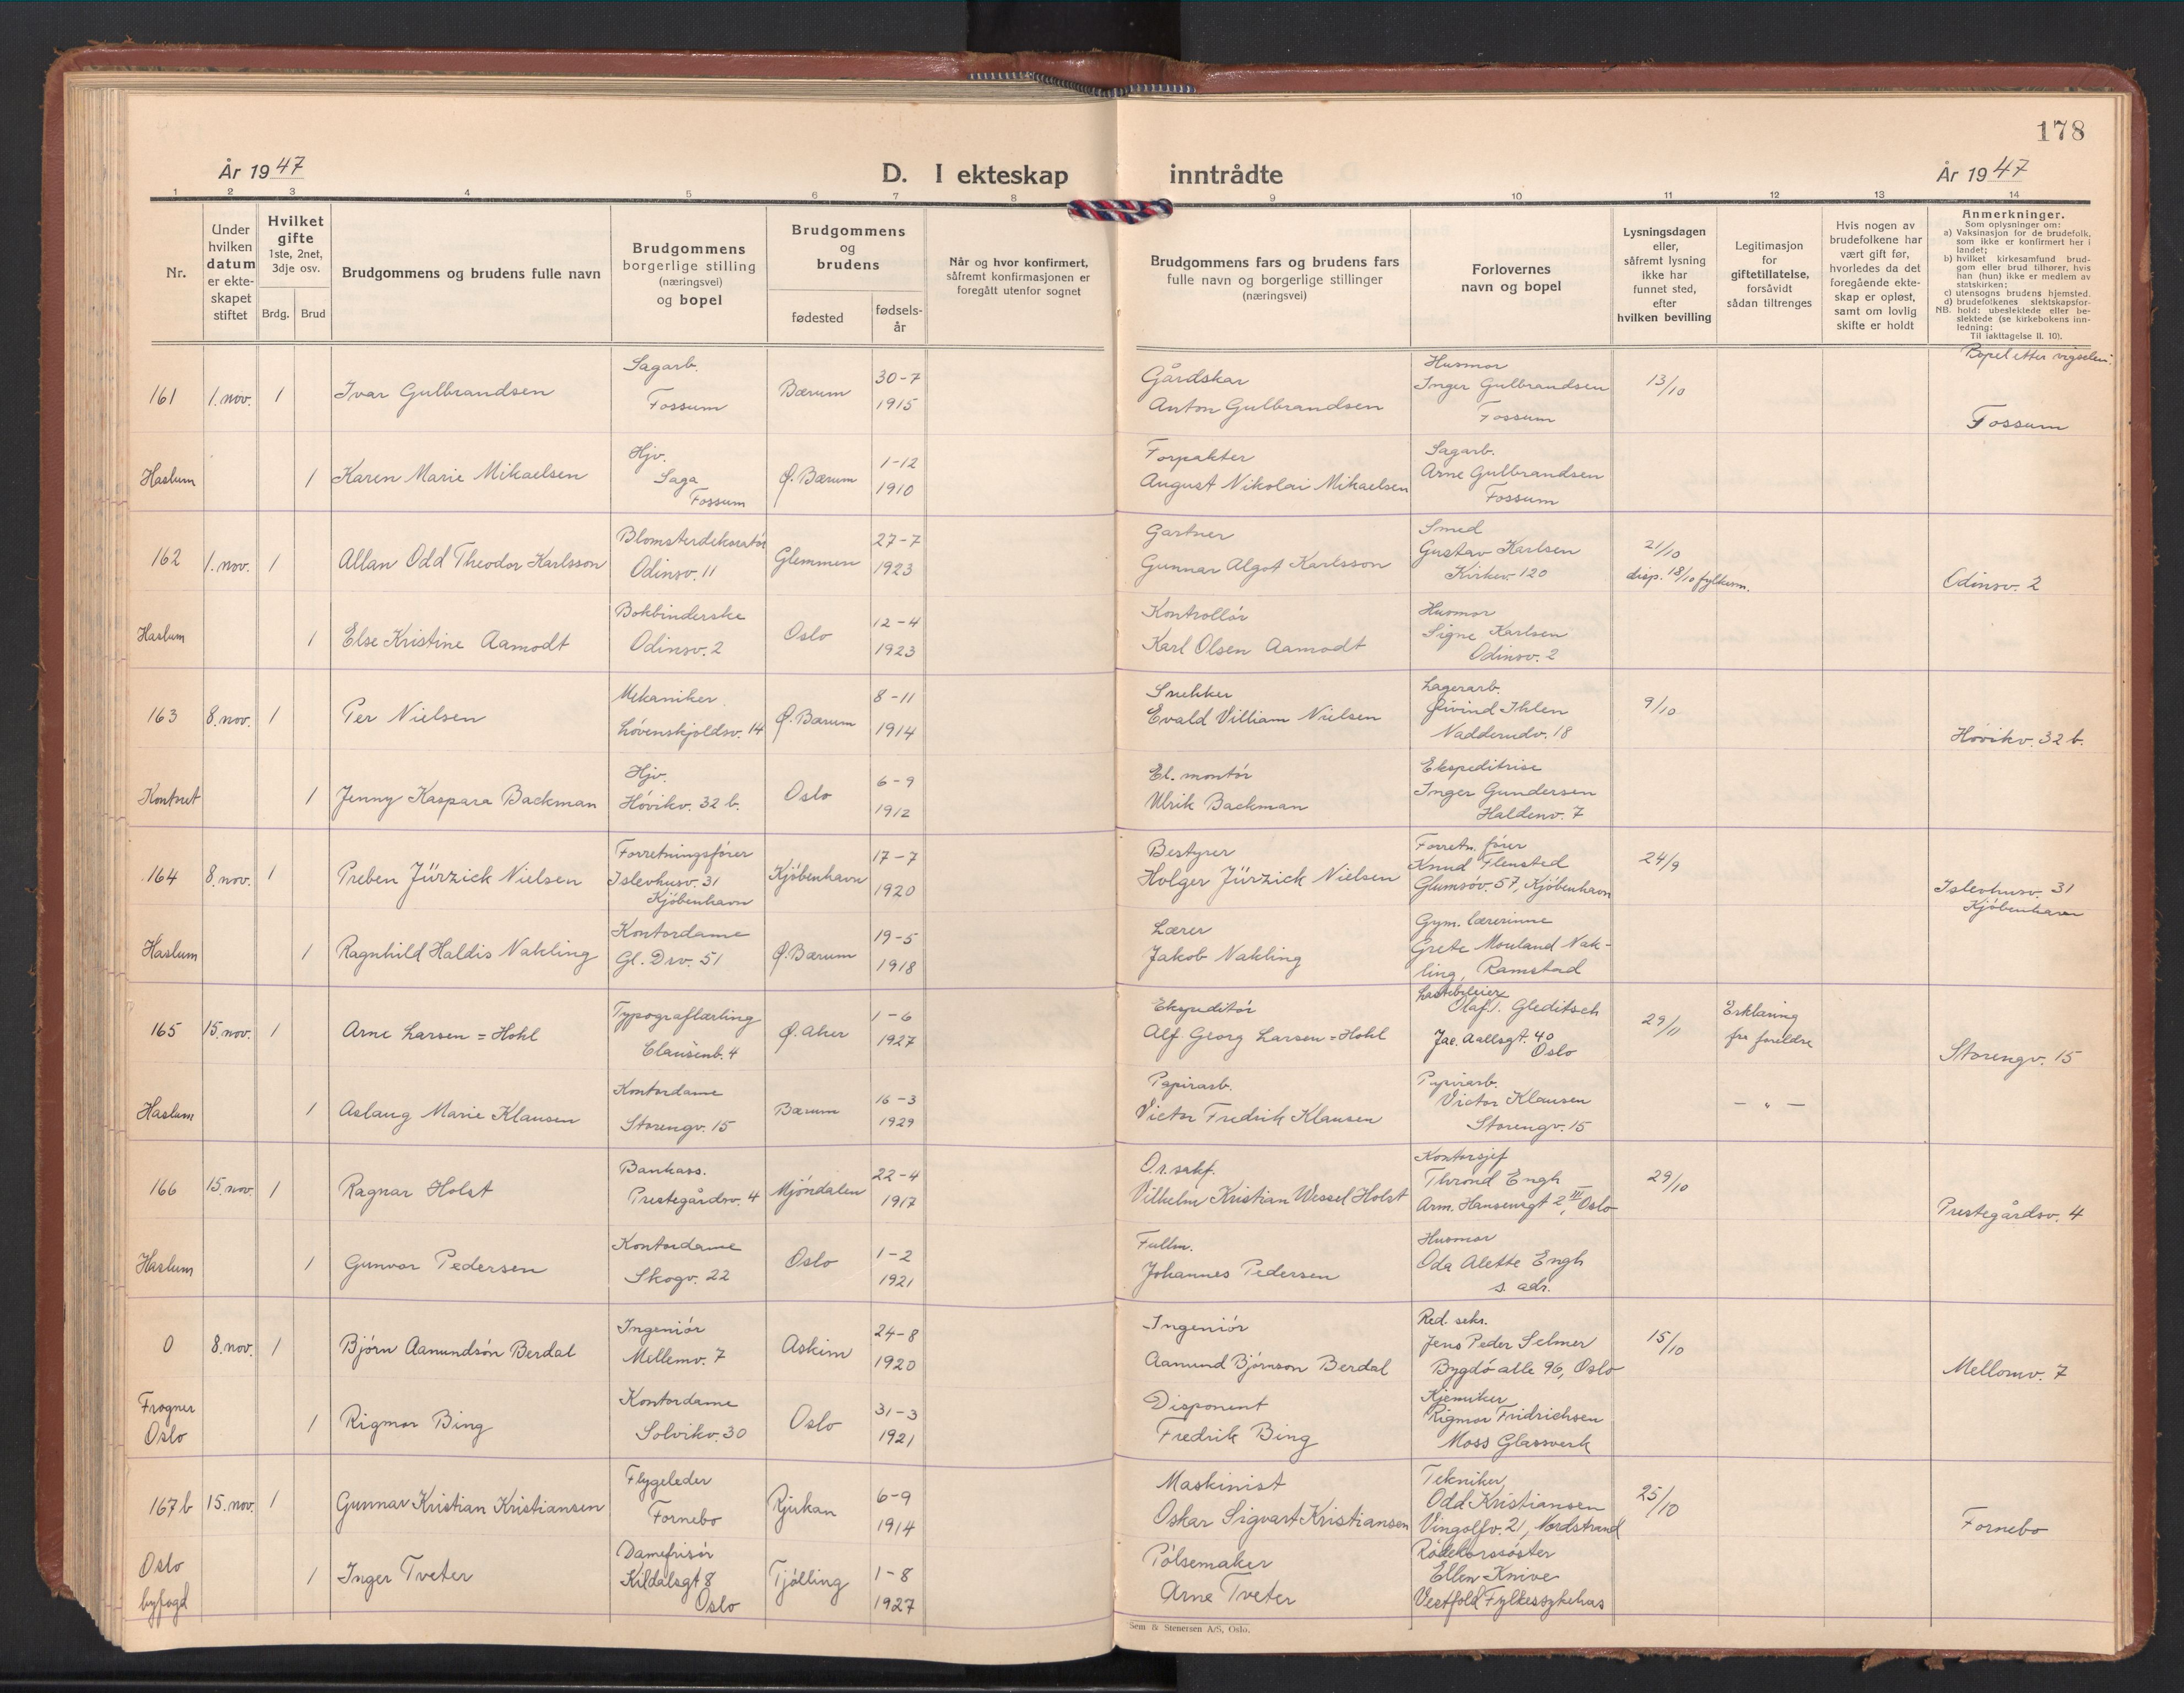 178
År 1947
D. I ekteskap inntrådte
År 1947
1 2 3 4 5 6 7 8 9 10 11 12 13 14
Nr.
Under hvilken datum er ekteskapet stiftet
Hvilket gifte 1ste, 2net, 3dje osv.
Brdg. Brud
Brudgommens og brudens fulle navn
Brudgommens borgerlige stilling (næringsvei) og bopel
Brudgommens og brudens
fødested
fødselsår
Når og hvor konfirmert, såfremt konfirmasjonen er foregått utenfor sognet
Brudgommens fars og brudens fars fulle navn og borgerlige stillinger (næringsvei)
Forlovernes navn og bopel
Lysningsdagen eller, såfremt lysning ikke har funnet sted, efter hvilken bevilling
Legitimasjon for giftetillatelse, forsåvidt sådan tiltrenges
Hvis nogen av brudefolkene har vært gift før, hvorledes da det foregående ekteskap er opløst, samt om lovlig skifte er holdt
Anmerkninger.
Som oplysninger om:
a) Vaksinasjon for de brudefolk, som ikke er konfirmert her i landet;
b) hvilket kirkesamfund brudgom eller brud tilhører, hvis han (hun) ikke er medlem av statskirken;
c) utensogns brudens hjemsted.
d) brudefolkenes slektskapsforhold: ubeslektede eller beslektede (se kirkebokens innledning:
NB.
Til iakttagelse II. 10).
Bopel etter vigselen:
161 1. nov. 1 Ivar Gulbrandsen Sagarb. Fossum Bærum 30-7 1915 Gårdskar Anton Gulbrandsen Husmor Inger Gulbrandsen Fossum 13/10 Fossum
Haslum 1 Karen Marie Mikaelsen Hjv. Saga Fossum Ø. Bærum 1-12 1910 Forpakter August Nikolai Mikaelsen Sagarb. Arne Gulbrandsen Fossum
162 1. nov. 1 Allan Odd Theodor Karlsson Blomsterdekoratør Odinsv. 11 Glemmen 27-7 1923 Gartner Gunnar Algot Karlsson Smed Gustav Karlsen Kirkev. 120 21/10 disp. 18/10 fylkesm. Odinsv. 2
Haslum 1 Else Kristine Aamodt Bokbinderske Odinsv. 2 Oslo 12-4 1923 Kontrollør Karl Olsen Aamodt Husmor Signe Karlsen Odinsv. 2
163 8. nov. 1 Per Nielsen Mekaniker Løvenskjoldsv. 14 Ø. Bærum 8-11 1914 Snekker Evald Villiam Nielsen Lagerarb. Øivind Ihlen Nadderudv. 18 9/10 Høvikv. 32 b.
Kontret 1 Jenny Kaspara Backman Hjv. Høvikv. 32 b. Oslo 6-9 1912 El. montør Ulrik Backman Ekspeditrise Inger Gundersen Haldenv. 7
164 8. nov. 1 Preben Jürzick Nielsen Forretningsfører Islevhusv. 31 Kjøbenhavn Kjøbenhavn 17-7 1920 Bestyrer Holger Jürzick Nielsen Forretn. fører Knud Flensted Glumsøv. 57, Kjøbenhavn 24/9 Islevhusv. 31 Kjøbenhavn
Haslum 1 Ragnhild Haldis Nakling Kontordame Gl. Drv. 51 Ø. Bærum 19-5 1918 Lærer Jakob Nakling Gym. lærerinne Grete Mouland Nakling, Ramstad
165 15. nov. 1 Arne Larsen = Hohl Typograflærling Clausenb. 4 Ø. Aker 1-6 1927 Ekspeditør Alf Georg Larsen = Hohl Lastebileier Olaf I. Gleditsch Jac. Aallsgt. 40 Oslo 29/11 Erklæring fra foreldre Storengv. 15
Haslum 1 Aslaug Marie Klausen Kontordame Storengv. 15 Bærum 16-3 1929 Papirarb. Victor Fredrik Klausen Papirarb. Victor Klausen Storengv. 15 — " —
166 15. nov. 1 Ragnar Holst Bankass. Prestegårdsv. 4 Mjøndalen 22-4 1917 O.r.sakf. Vilhelm Kristian Wessel Holst Kontorsjef Thrond Engh Arm. Hansensgt 2 III, Oslo 29/10 Prestegårdsv. 4
Haslum 1 Gunvor Pedersen Kontordame Skogv. 22 Oslo 1-2 1921 Fullm. Johannes Pedersen Husmor Oda Alette Engh s. adr.
0 8. nov. 1 Bjørn Aamundsøn Berdal Ingeniør Mellemv. 7 Askim 24-8 1920 Ingeniør Aamund Bjørnson Berdal Red. sekr. Jens Peder Selmer Bygdø alle 96, Oslo 15/10 Mellomv. 7
Frogner Oslo 1 Rigmor Bing Kontordame Solvikv. 30 Oslo 31-3 1921 Disponent Fredrik Bing Kjemiker Rigmor Fridrichsen Moss Glassverk
167 b 15. nov. 1 Gunnar Kristian Kristiansen Flygeleder Fornebo Rjukan 6-9 1914 Maskinist Oskar Sigvart Kristiansen Tekniker Odd Kristiansen Vingolfv. 21, Nordstrand 25/10 Fornebo
Oslo byfogd 1 Inger Tveter Damefrisør Kildalsgt 8 Oslo Tjølling 1-8 1927 Pølsemaker Arne Tveter Rødekorssøster Ellen Knive Vestfold Fylkessykehus
Sem & Stenersen A/S, Oslo.